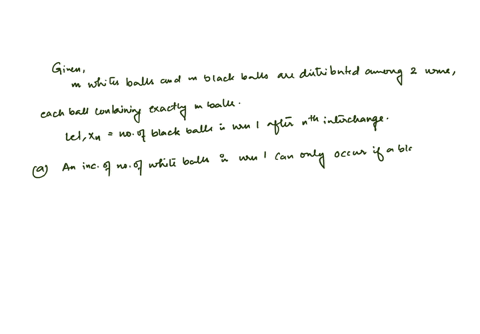 Given,
m white balls and m black balls are distributed among 2 urns,
each ball containing exactly m balls.
Let, Xn = no. of black balls in urn 1 after nth interchange.
(a) An inc. of no. of white balls in urn 1 can only occur if a blc